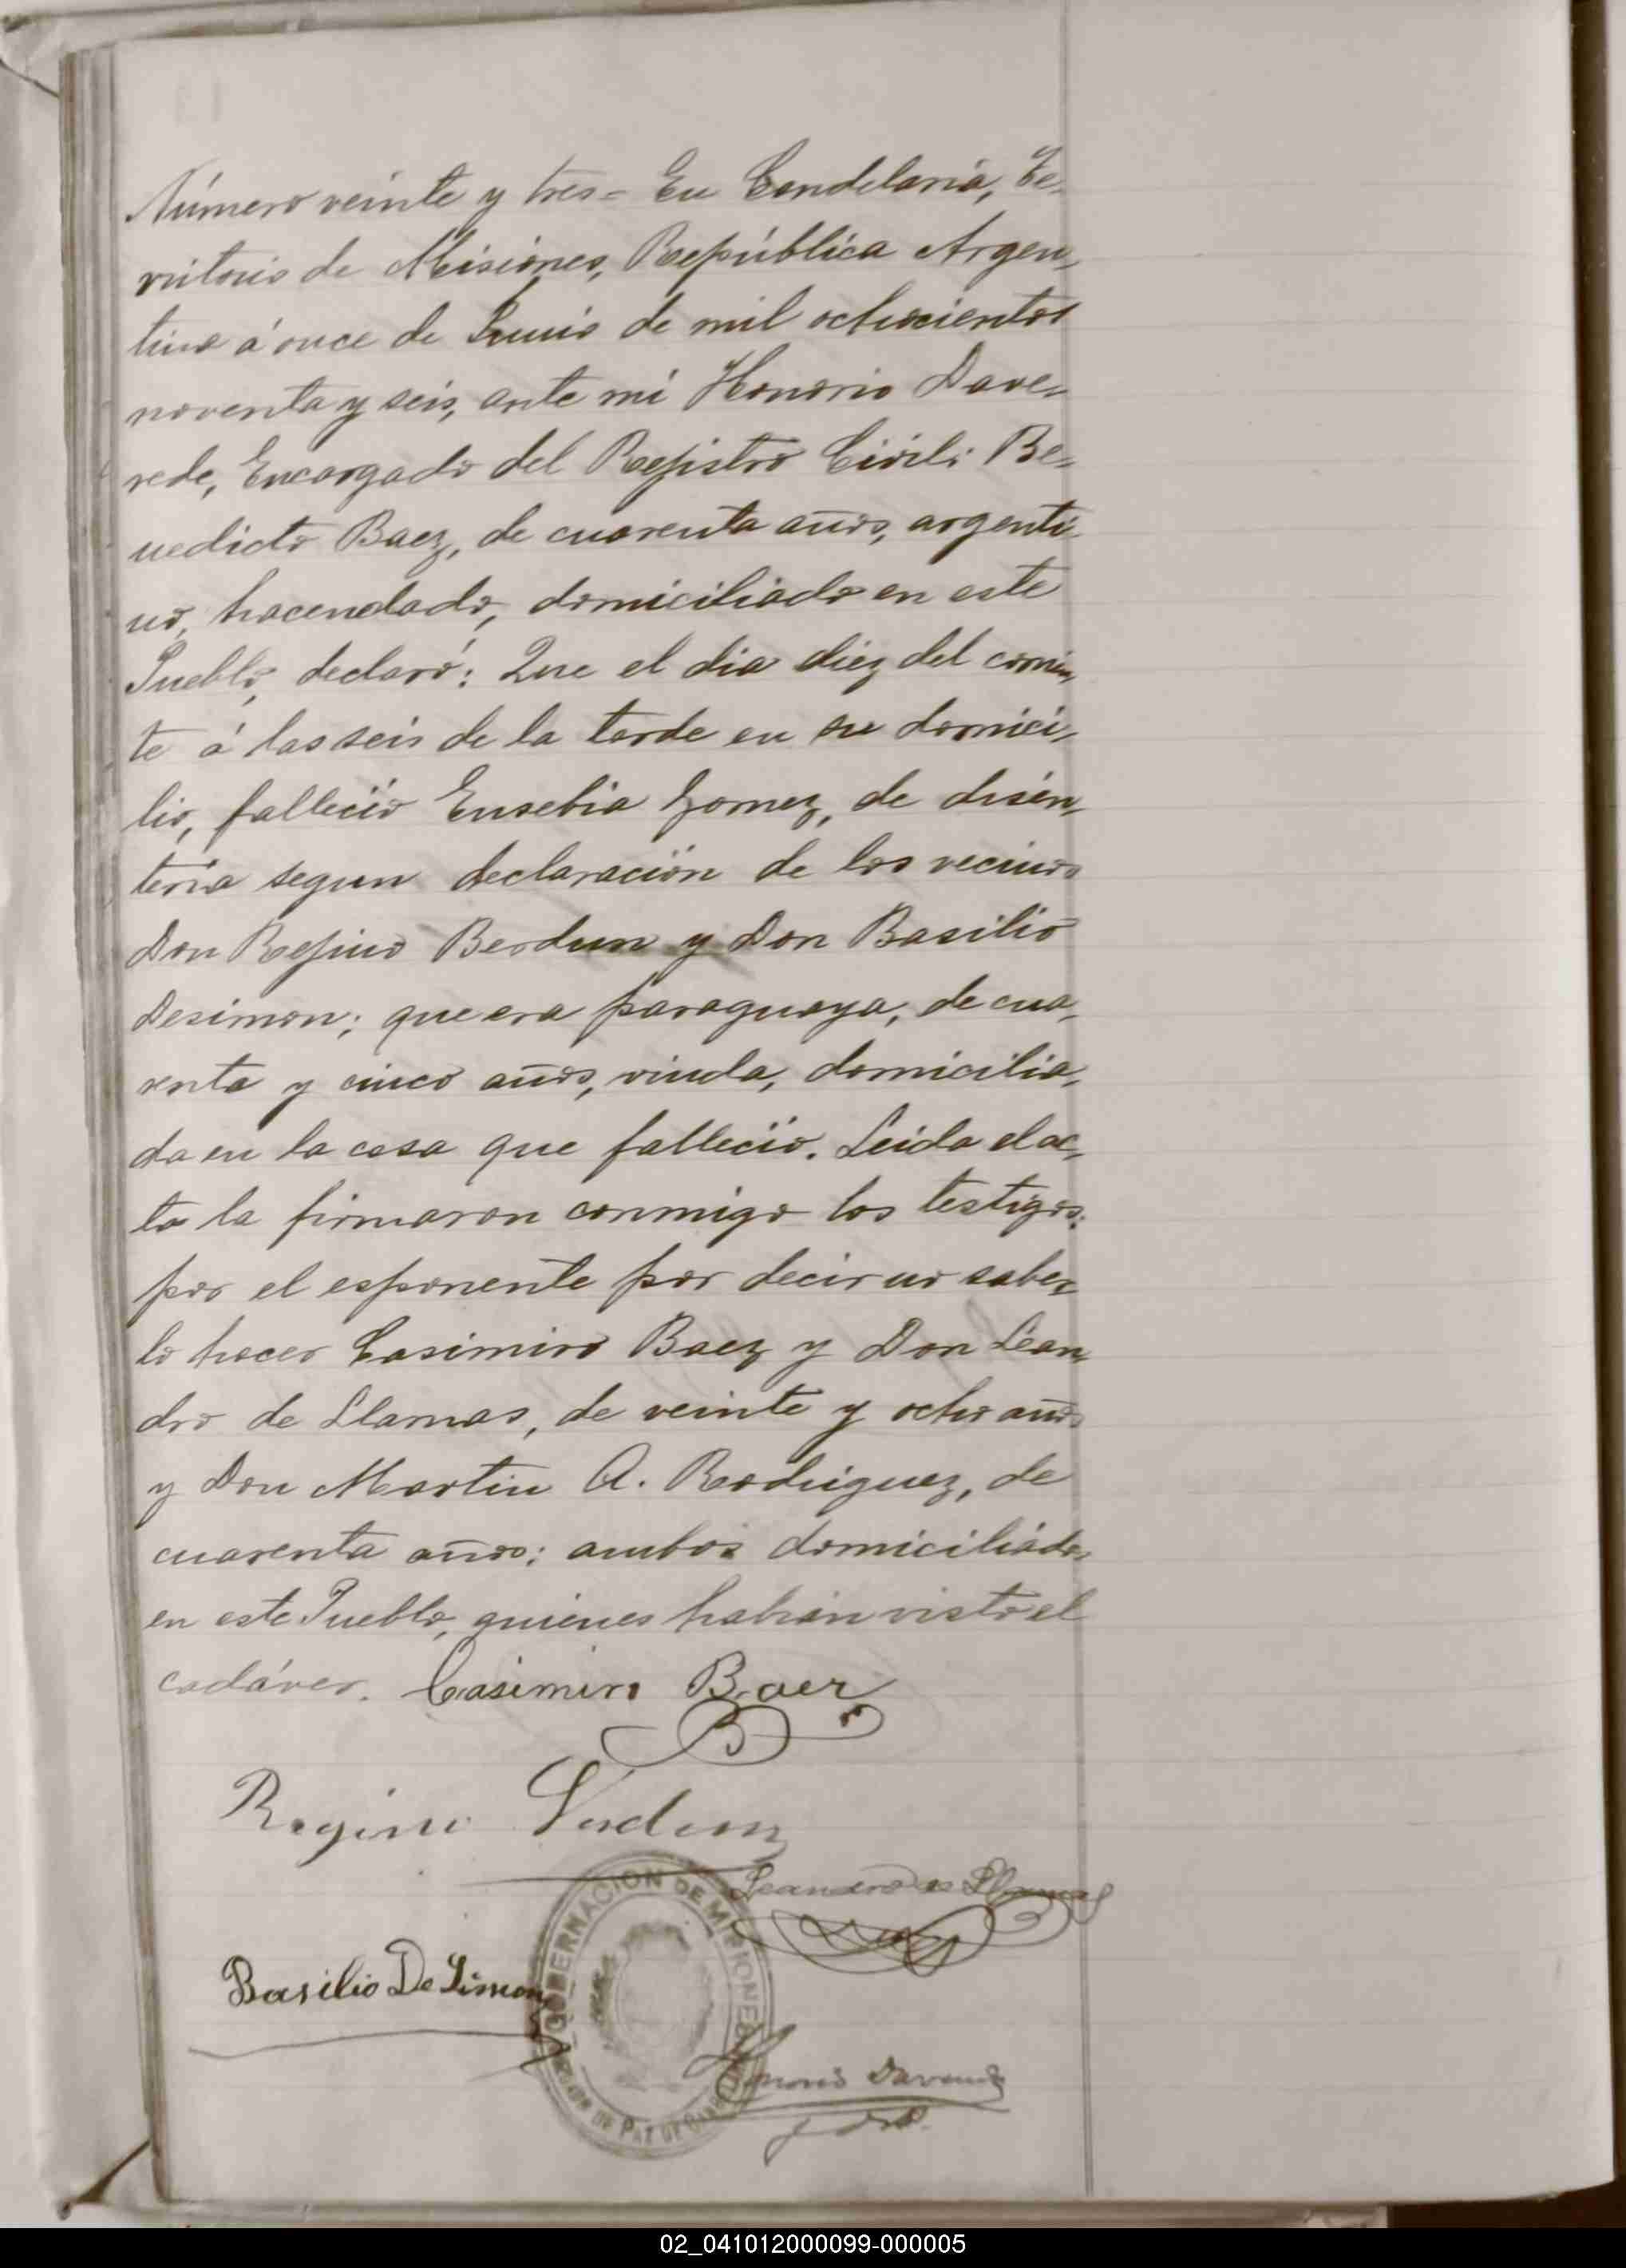 Número veinte y tres = En Candelaria, Te-
rritorio de Misiones, República Argen-
tina á once de Junio de mil ochocientos
noventa y seis, ante mi Honorio Dave-
rede, Encargado del Registro Civil: Be-
nedicto Baez, de cuarenta años, argenti-
no, hacendado, domiciliado en este
Pueblo, declaró: Que el dia diez del corrien-
te á las seis de la tarde en su domici-
lio, falleció Eusebia Gomez, de disen-
teria segun declaración de los vecinos
Don Regino Berdun y Don Basilio
Desimon; que era paraguaya, de cua-
renta y cinco años, viuda, domicilia-
da en la casa que falleció. Leida el ac-
ta la firmaron conmigo los testigos:
por el esponente por decir no saber
lo hacer Casimiro Baez y Don Lean-
dro de Llamas, de veinte y ocho años
y Don Martin A. Rodriguez, de
cuarenta años; ambos domiciliados
en este Pueblo, quienes habian visto el
cadáver. Casimiro Baez
Regino
Leandro de Llamas
GOBERNACION DE MISIONES
Basilio De Simon
Honorio
DE PAZ DE
02_041012000099-000005